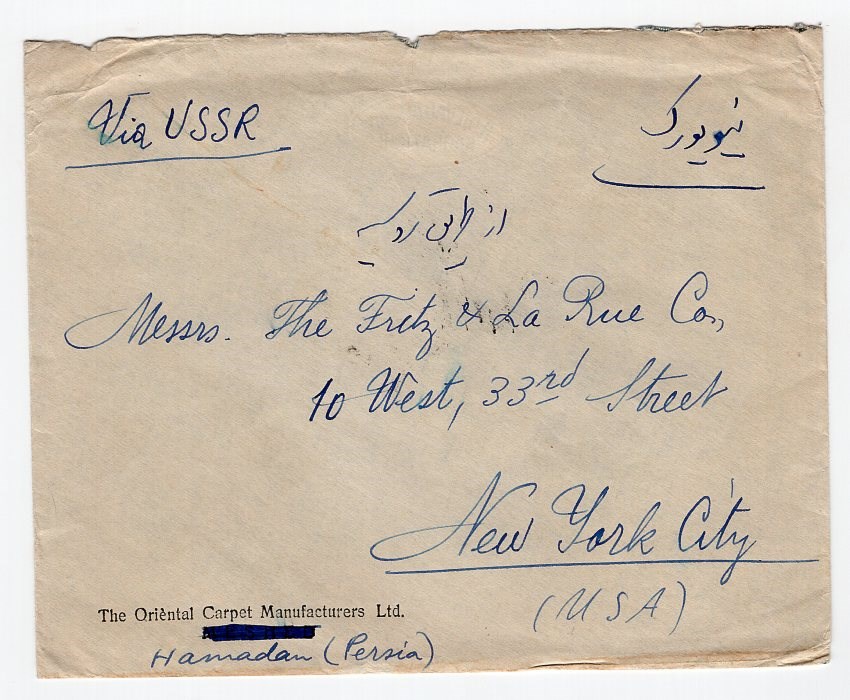 Via USSR
نیویورک
از طریق روسیه
Messrs. The Fritz & La Rue Co,
10 West, 33rd Street
New York City
(USA)
The Oriental Carpet Manufacturers Ltd.
Hamadan (Persia)